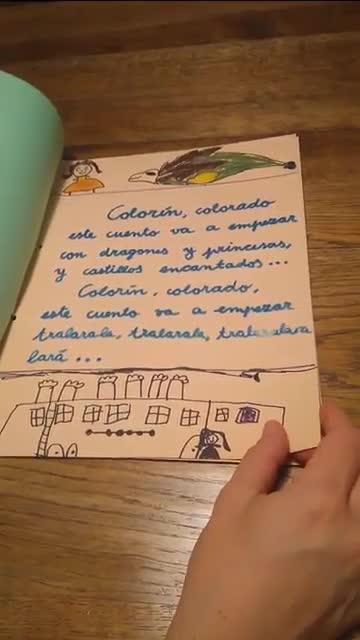 Colorín, colorado
este cuento va a empezar
con dragones y princesas,
y castillos encantados...
Colorín, colorado,
este cuento va a empezar
tralarala, tralarala,
lará...